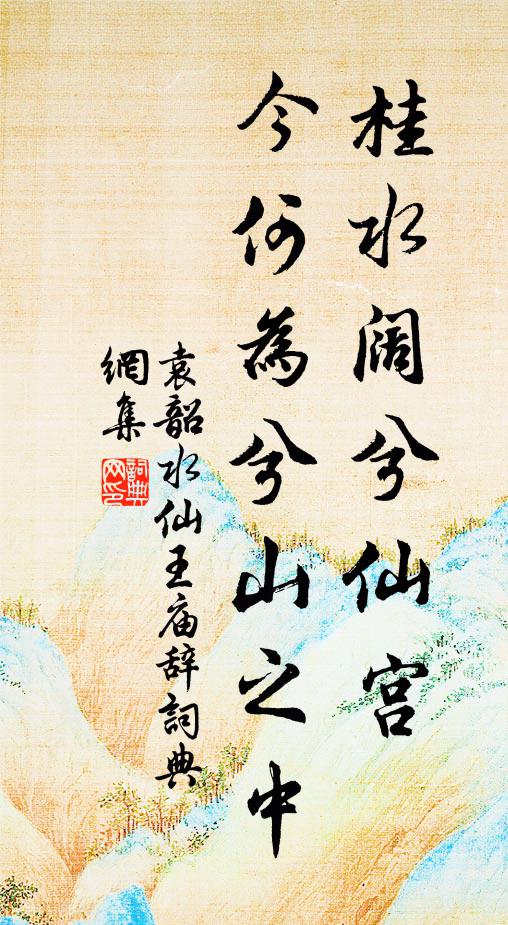 桂水阔兮仙宫
今何為兮山之中
袁韶水仙王庙辞詞典
網集
詞典
网印